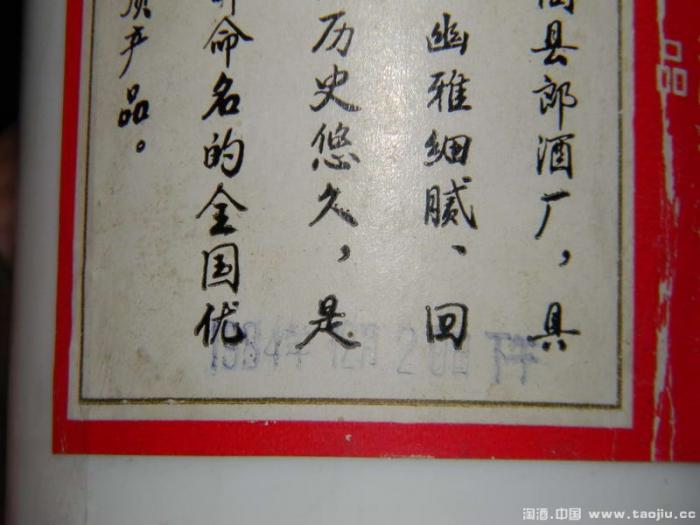 品
县郎酒厂，具
幽雅细腻、回
历史悠久，是
命名的全国优
质产品。
1984年12月20日下午
淘酒.中国 www.taojiu.cc